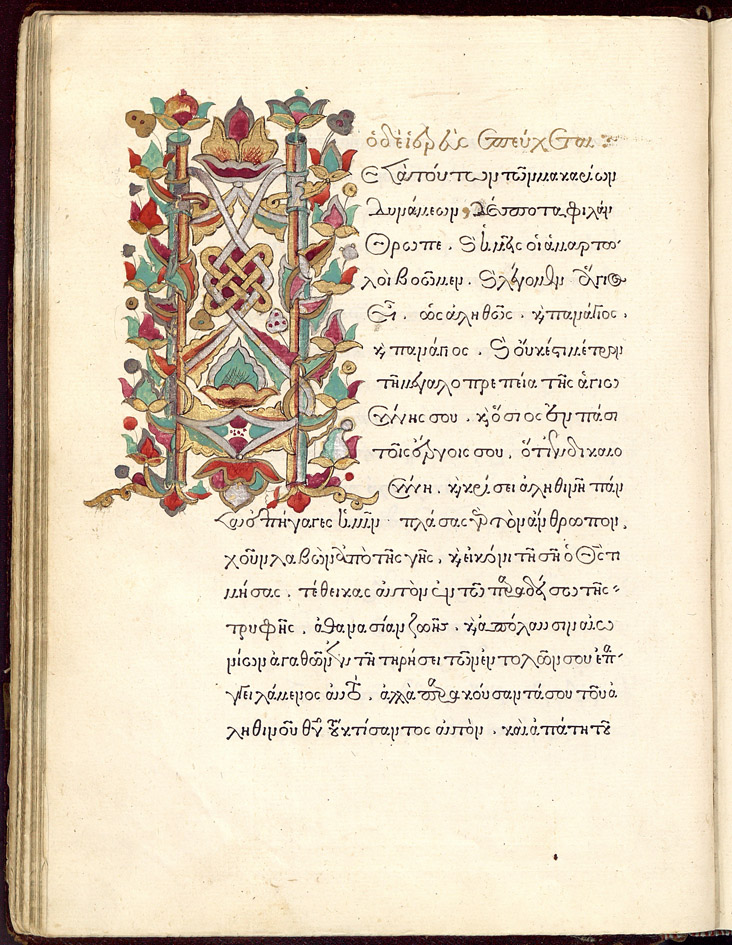 ὁ δὲ ἱερεὺς ἐπεύχεται :
Μετὰ τούτων τῶν μακαρίων
δυνάμεων, Δέσποτα φιλάν
θρωπε. καὶ ἡμεῖς οἱ ἁμαρτω
λοὶ βοῶμεν. καὶ λέγομεν ἅγιος
εἶ. ὡς ἀληθῶς. καὶ πανάγιος.
καὶ πανάγιος. καὶ οὐκ ἔστι μέτρον
τῇ μεγαλοπρεπεία τῆς ἁγιω
σύνης σου. καὶ ὅσιος ἐν πᾶσι
τοῖς ἔργοις σου. ὅτι ἐν δικαιο
σύνη. καὶ κρίσει ἀληθινῆ πάν
τα ἐπήγαγες ἡμῖν πλάσας γὰρ τὸν ἄνθρωπον,
χοῦν λαβὼν ἀπὸ τῆς γῆς, καὶ εἰκόνι τῆ σῆ ὁ Θεὸς τι
μήσας. τέθεικας αὐτὸν ἐν τῶ παραδείσω τῆς
τρυφῆς. ἀθανασίαν ζωῆς. καὶ ἀπόλαυσιν αἰω
νίων ἀγαθῶν ἐν τῆ τηρήσει τῶν ἐντολῶν σου ἐπαγ
γειλάμενος αὐτῶ. ἀλλὰ παρακούσαντά σου τοῦ ἀ
ληθινοῦ θεοῦ τοῦ κτίσαντος αὐτὸν. καὶ ἀπάτη τοῦ